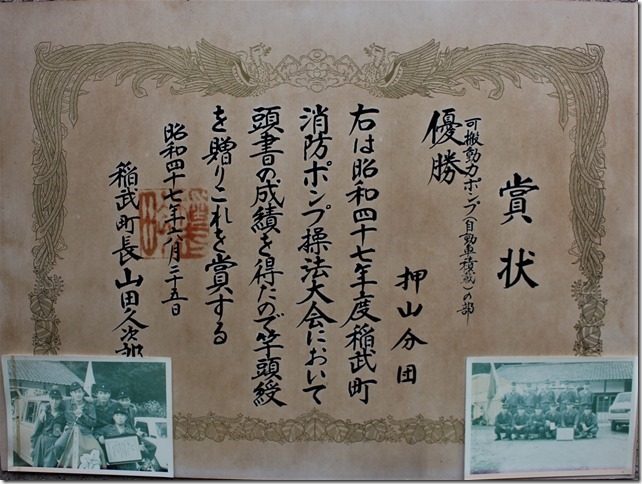 賞状
可搬動力ポンプ(自動車積載)の部
優勝
押山分団
右は昭和四十七年度稲武町
消防ポンプ操法大会において
頭書の成績を得たので竿頭綬
を贈りこれを賞する
昭和四十七年六月二十五日
稲武町長山田久次郎